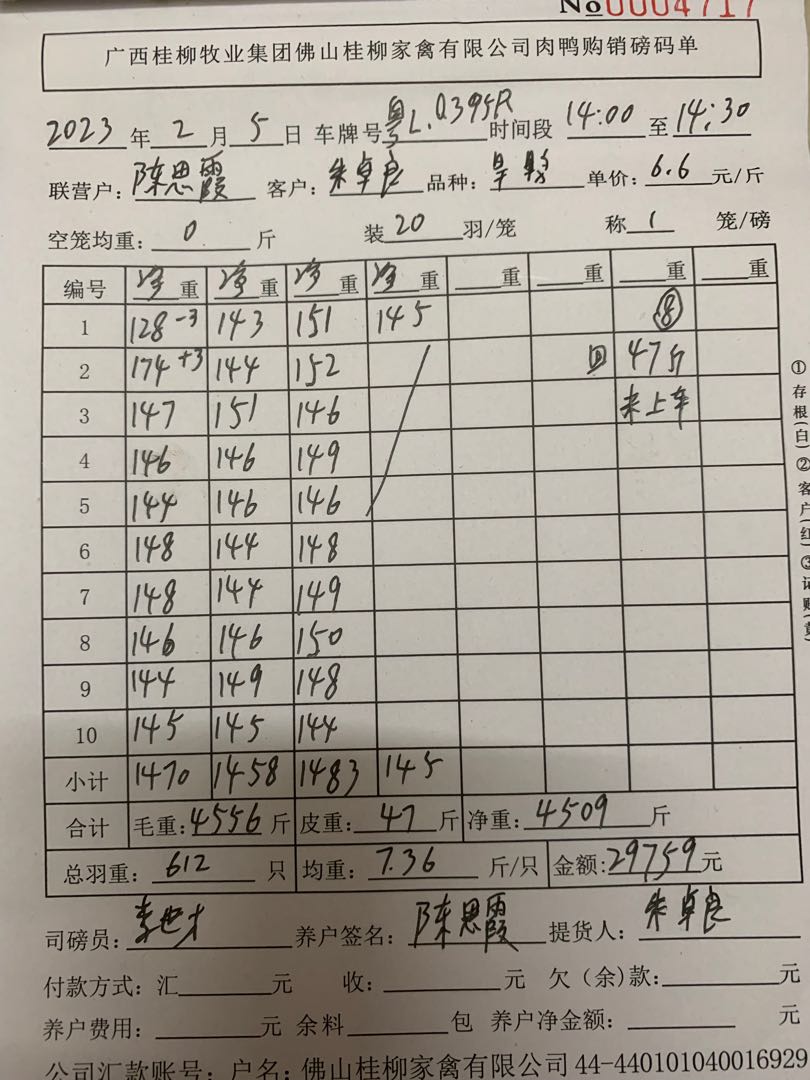 No 0004717
广西桂柳牧业集团佛山桂柳家禽有限公司肉鸭购销磅码单
2023年2月5日 车牌号粤L.Q395R 时间段 14:00 至 14:30
联营户:陈思霞 客户:朱卓良 品种: 单价:6.6 元/斤
空笼均重:0 斤 装20羽/笼 称1 笼/磅
编号 净重 净重 净重 净重 重 重 重 重
1 128-3 143 151 145 ⑧
2 174+3 144 152 回 47斤
3 147 151 146 未上车
4 146 146 149
5 144 146 146
6 148 144 148
7 148 144 149
8 146 146 150
9 144 149 148
10 145 145 144
小计 1470 1458 1483 145
合计 毛重:4556斤 皮重:47斤 净重:4509斤
总羽重:612只 均重:7.36斤/只 金额:29759元
司磅员: 养户签名:陈思霞 提货人:朱卓良
付款方式:汇 元 收: 元 欠(余)款: 元
养户费用: 元 余料 包 养户净金额: 元
公司汇款账号:户名:佛山桂柳家禽有限公司 44-440101040016929
①存根(白)②客户(红)③记账(黄)